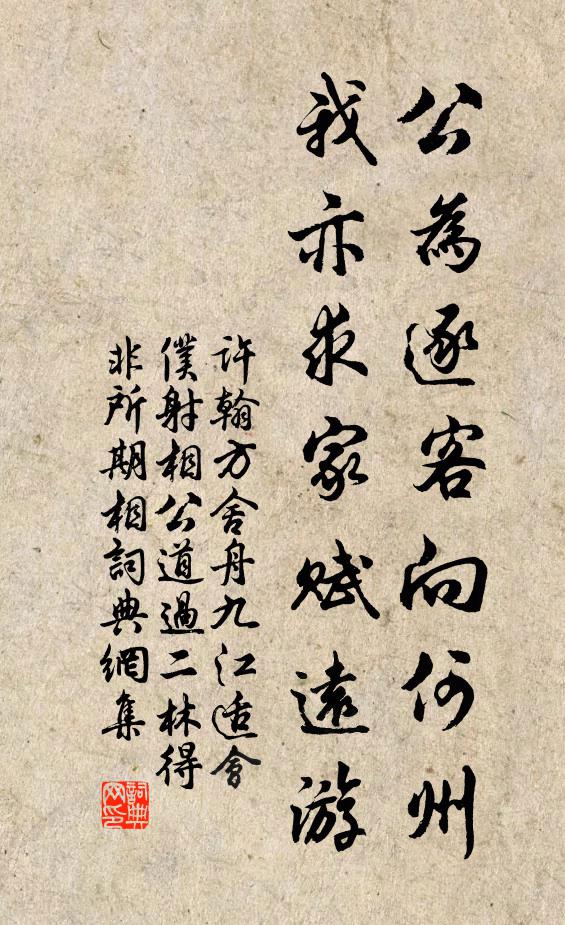 公為逐客向何州
我亦求家賦遠游
許翰方舍舟九江适會
僕射相公道過二林得
非所期相詞典網集
詞典网印